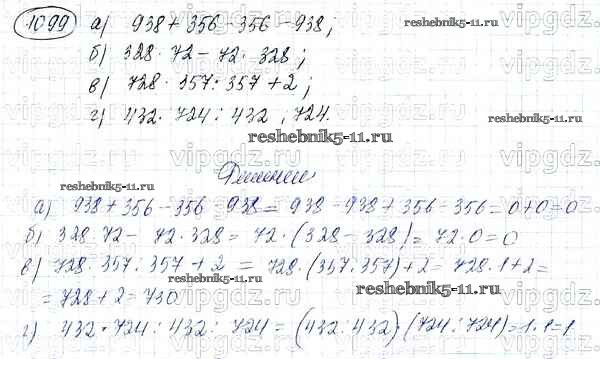 1099 а) 938 + 356 - 356 - 938;
reshebnik5-11.ru
б) 328 · 72 - 72 · 328;
в) 728 · 357 : 357 + 2;
reshebnik5-11.ru
г) 432 · 724 : 432 : 724.
reshebnik5-11.ru
vipgdz.ru
Решение
reshebnik5-11.ru
а) 938 + 356 - 356 938 = 938 - 938 + 356 - 356 = 0 + 0 = 0
б) 328 72 - 72 · 328 = 72 · (328 - 328) = 72 · 0 = 0
в) 728 · 357 : 357 + 2 = 728 · (357 : 357) + 2 = 728 · 1 + 2 =
reshebnik5-11.ru
= 728 + 2 = 730
reshebnik5-11.ru
г) 432 · 724 : 432 : 724 = (432 : 432) · (724 : 724) = 1 · 1 = 1